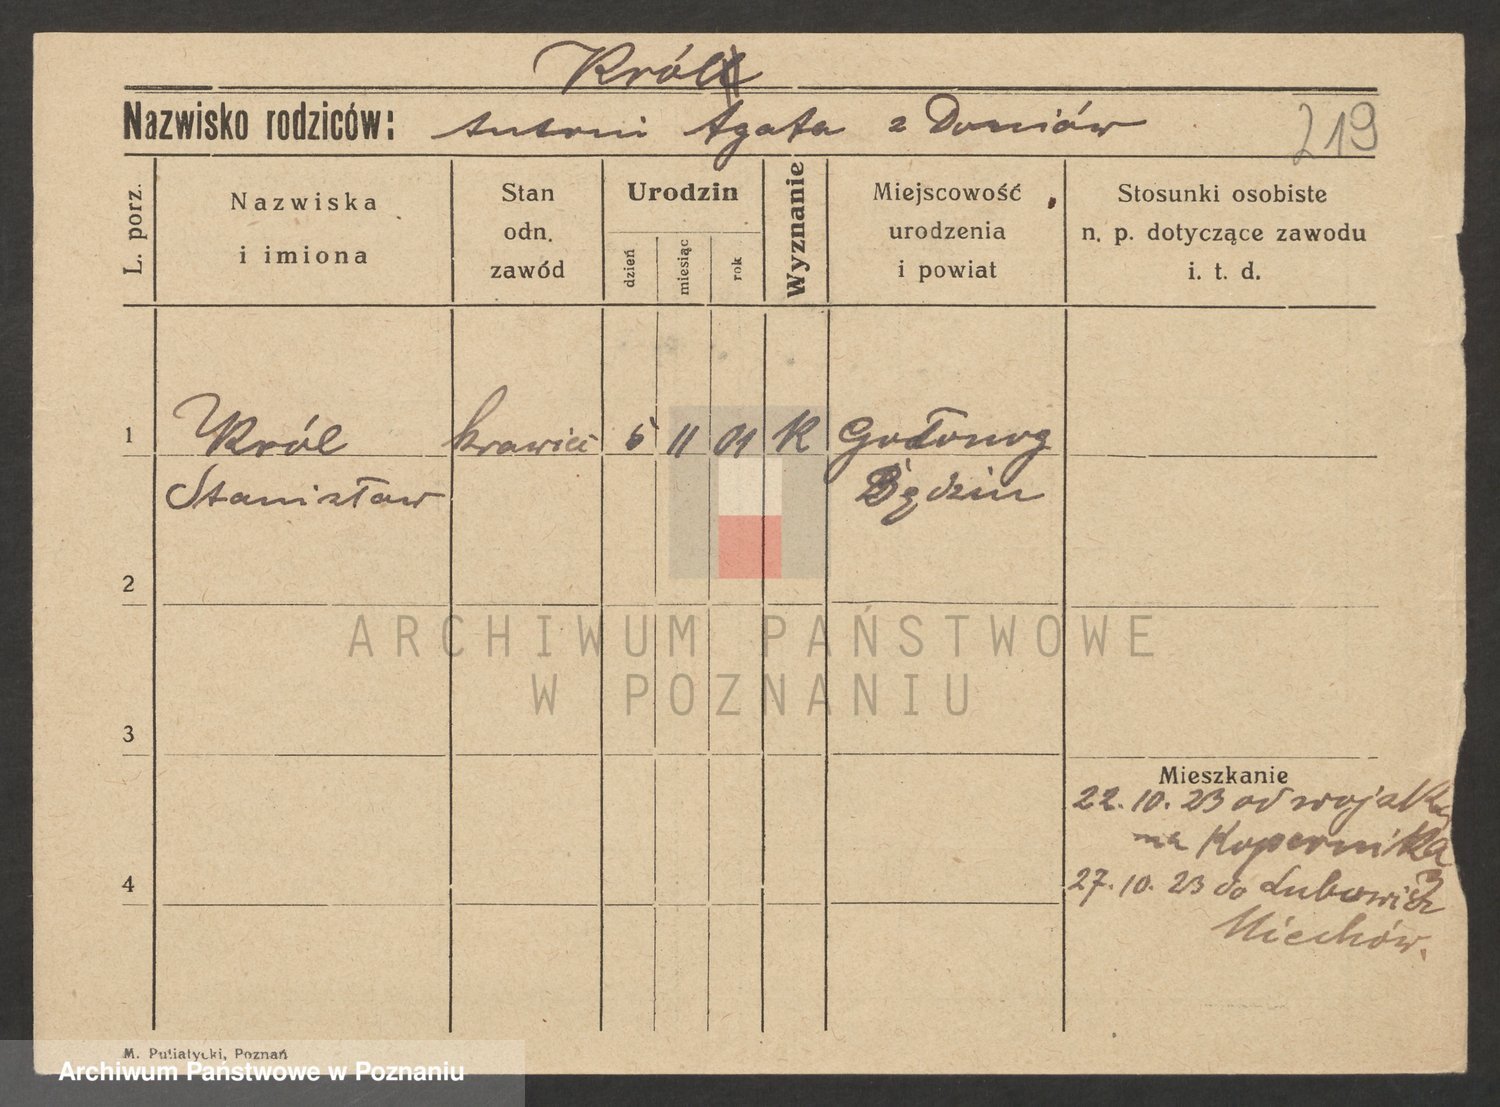 Król
Nazwisko rodziców: Antoni Agata z Doniów 219
L. porz.
Nazwiska
i imiona
Stan
odn.
zawód
Urodzin
dzień
miesiąc
rok
Wyznanie
Miejscowość
urodzenia
i powiat
Stosunki osobiste
n. p. dotyczące zawodu
i. t. d.
1 Król krawiec 5 11 01 K Gołonog
Stanisław Będzin
2
ARCHIWUM PAŃSTWOWE
W POZNANIU
3
Mieszkanie
22.10.23 od wojska
na Kopernika 3
4
27.10.23 do
Miechów.
M. Putiatycki, Poznań
Archiwum Państwowe w Poznaniu